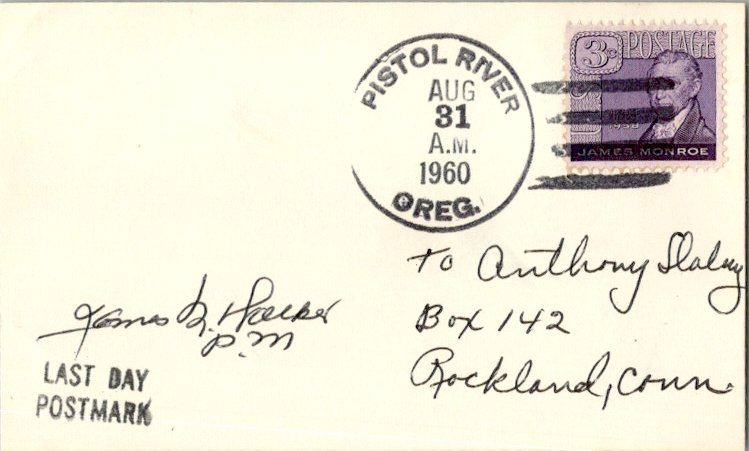 PISTOL RIVER
AUG
31
A.M.
1960
OREG.
3¢ POSTAGE
1958
JAMES MONROE
To Anthony Slabey
Box 142
Rockland, Conn.
James
P.M
LAST DAY
POSTMARK